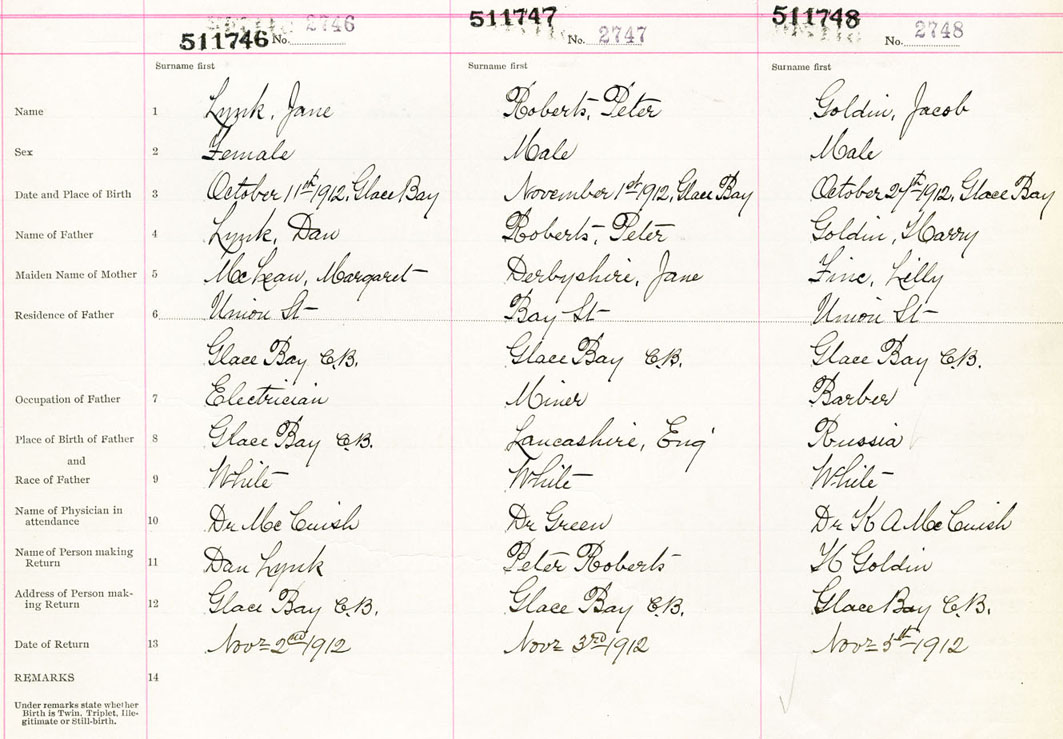 511746 No. 2746 511747 No. 2747 511748 No. 2748
Surname first Surname first Surname first
Name 1 Lynk, Jane Roberts, Peter Goldin, Jacob
Sex 2 Female Male Male
Date and Place of Birth 3 October 11th 1912, Glace Bay November 1st 1912, Glace Bay October 27th 1912, Glace Bay
Name of Father 4 Lynk, Dan Roberts, Peter Goldin, Harry
Maiden Name of Mother 5 McLean, Margaret Derbyshire, Jane Fine, Lilly
Residence of Father 6 Union St Bay St Union St
Glace Bay C.B. Glace Bay C.B. Glace Bay C.B.
Occupation of Father 7 Electrician Miner Barber
Place of Birth of Father 8 Glace Bay C.B. Lancashire, Eng Russia
and
Race of Father 9 White White White
Name of Physician in
attendance 10 Dr McCuish Dr Green Dr K A McCuish
Name of Person making
Return 11 Dan Lynk Peter Roberts H Goldin
Address of Person mak-
ing Return 12 Glace Bay C.B. Glace Bay C.B. Glace Bay C.B.
Date of Return 13 Nov 2nd 1912 Nov 3rd 1912 Nov 5th 1912
REMARKS 14
Under remarks state whether
Birth is Twin, Triplet, Ille-
gitimate or Still-birth.